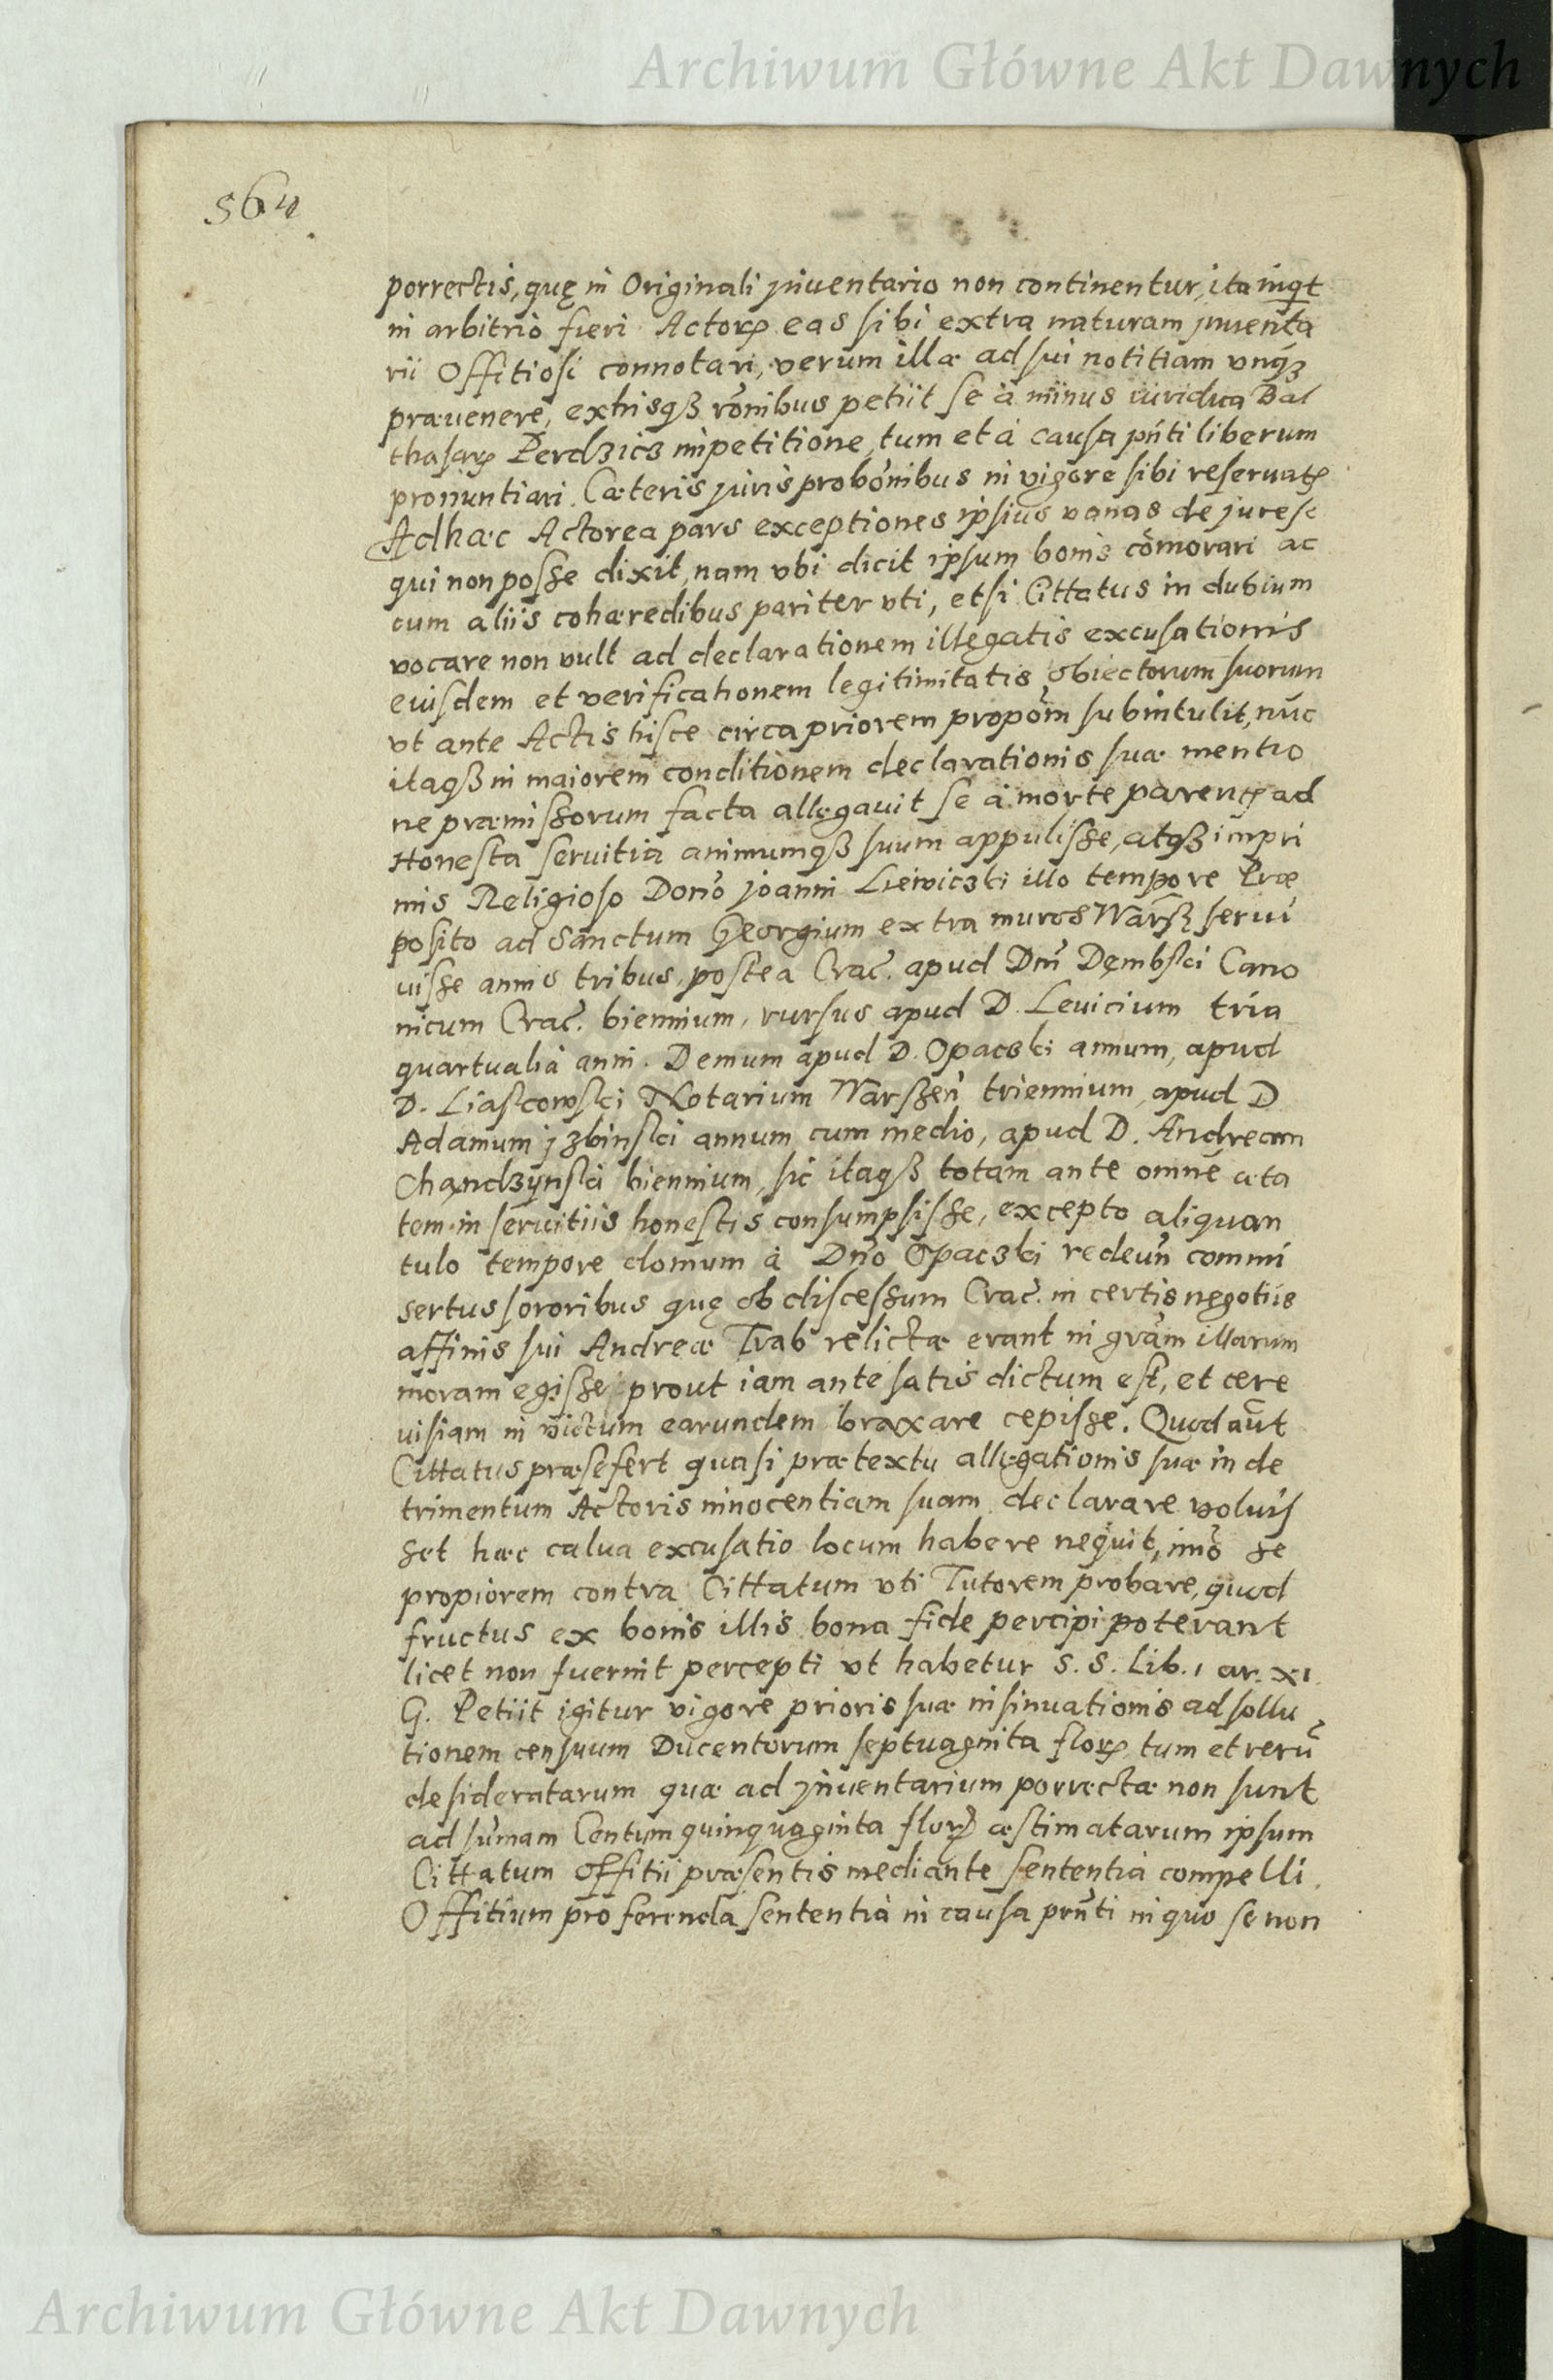 Archiwum Główne Akt Dawnych
564
porrectis, quę in Originali jnuentario non continentur, ita inqt
in arbitrio fieri Actorꝝ eas sibi extra naturam jnuenta
rii Offitiosi connotari, verum illæ ad sui notitiam vnqꝫ
præuenere, exhisqꝫ rõnibus petiit se à minus iuridica Bal
thasarꝝ Perdzicz impetitione, tum et à causa pñti liberum
pronuntiari. Cæteris juris probõnibus in vigore sibi reseruatꝭ
Adhæc Actorea pars exceptiones ipsius vanas de jure se
qui non posse dixit, nam vbi dicit ipsum bonis cõmorari ac
cum aliis cohæredibus pariter vti, etsi Cittatus in dubium
vocare non vult ad declarationem illęgatis excusationis
eiusdem et verificationem legitimitatis obiectorum suorum
vt ante Actis hisce circa priorem propõm subintulit, nũc
itaqꝫ in maiorem conditionem declarationis suæ mentio
ne præmissorum facta allęgauit se à morte parentꝭ ad
Honesta seruitia animumqꝫ suum appulisse, atqꝫ inpri
mis Religioso Domõ Joanni Liewiczki illo tempore Præ
posito ad Sanctum Georgium extra muros Warsꝫ serui
uisse annis tribus, postea Crac̃. apud Dnũ Dęmbski Cano
nicum Crac̃. biennium, rursus apud D. Leuicium tria
quartualia anni. Demum apud D. Opaczki annum, apud
D. Liaskowski Notarium Warszeñ triennium, apud D
Adamum jzbinski annum cum medio, apud D. Andream
Chandzynski biennium, sic itaqꝫ totam ante omnẽ æta
tem in seruitiis honestis consumpsisse, excepto aliquan
tulo tempore domum à Dño Opaczki redeuñ commi
sertus sororibus quę ob discessum Crac̃. in certis negotiis
affinis sui Andreæ Trab relictæ erant in grãm illarum
moram egisse prout iam ante satis dictum est, et cere
uisiam in victum earundem braxare cepisse. Quod aũt
Cittatus præsefert quasi prætextu allęgationis suæ in de
trimentum Actoris innocentiam suam declarare voluis
set hæc calua excusatio locum habere nequit, imõ se
propiorem contra Cittatum vti Tutorem probare, quod
fructus ex bonis illis bona fide percipi poterant
licet non fuerint percepti vt habetur S. S. Lib. 1 ar. XI.
G. Petiit igitur vigore prioris suæ insinuationis ad sollu
tionem censuum Ducentorum septuaginta florꝝ tum et rerũ
desideratarum quæ ad jnuentarium porrectæ non sunt
ad sum̃am Centum quinquaginta florꝝ æstimatarum ipsum
Cittatum offitii præsentis mediante sententia compelli.
Offitium pro ferenda sententia in causa prñti in quo se non
Archiwum Główne Akt Dawnych